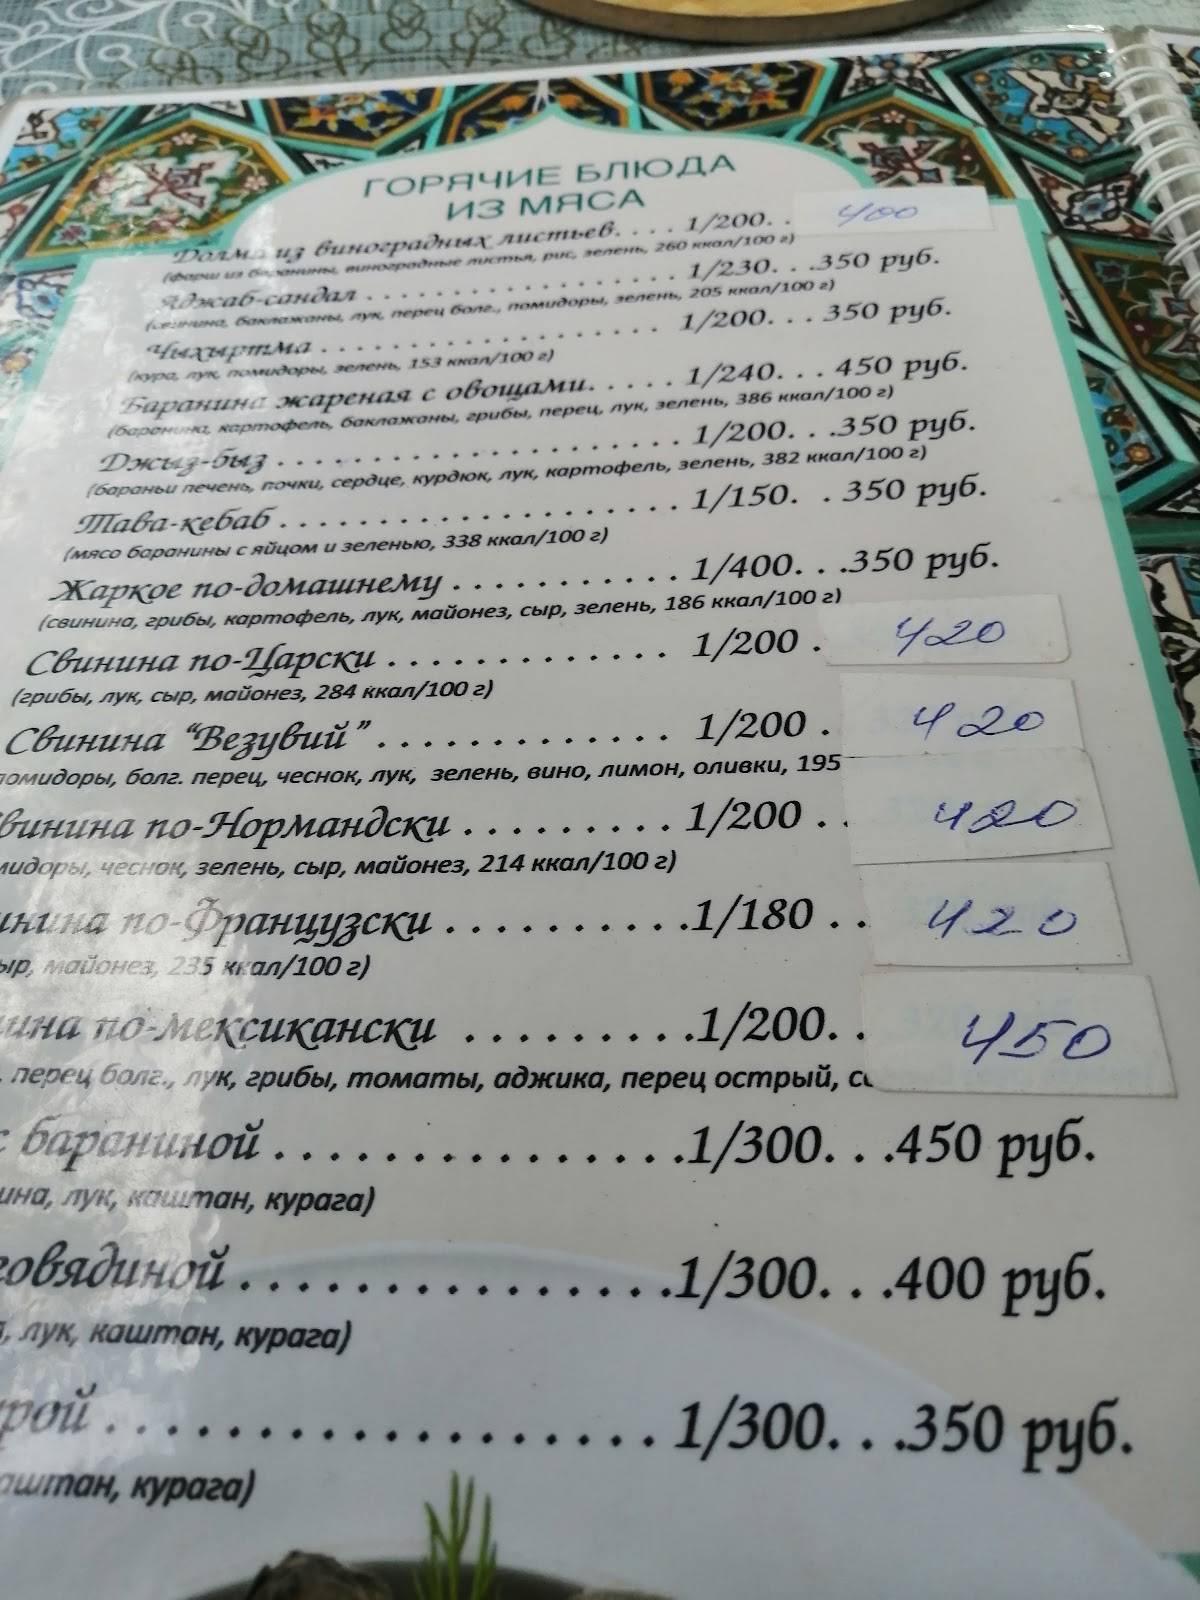 ГОРЯЧИЕ БЛЮДА
ИЗ МЯСА
Долма из виноградных листьев. . . . 1/200. . 400
(фарш из баранины, виноградные листья, рис, зелень, 260 ккал/100 г)
Аджаб-сандал . . . . . . . . . . . . . . . . . . . 1/230. . .350 руб.
(свинина, баклажаны, лук, перец болг., помидоры, зелень, 205 ккал/100 г)
Чыхыртма . . . . . . . . . . . . . . . . . . . . 1/200. . . 350 руб.
(кура, лук, помидоры, зелень, 153 ккал/100 г)
Баранина жареная с овощами. . . . . 1/240. . . 450 руб.
(баранина, картофель, баклажаны, грибы, перец, лук, зелень, 386 ккал/100 г)
Джыз-быз . . . . . . . . . . . . . . . . . . . . . . 1/200. . .350 руб.
(бараньи печень, почки, сердце, курдюк, лук, картофель, зелень, 382 ккал/100 г)
Тава-кебаб . . . . . . . . . . . . . . . . . . . . . 1/150. . . 350 руб.
(мясо баранины с яйцом и зеленью, 338 ккал/100 г)
Жаркое по-домашнему . . . . . . . . . . . 1/400. . .350 руб.
(свинина, грибы, картофель, лук, майонез, сыр, зелень, 186 ккал/100 г)
Свинина по-Царски . . . . . . . . . . . . . 1/200 . 420
(грибы, лук, сыр, майонез, 284 ккал/100 г)
Свинина “Везувий” . . . . . . . . . . . . . 1/200 . 420
помидоры, болг. перец, чеснок, лук, зелень, вино, лимон, оливки, 195
Свинина по-Нормандски . . . . . . . . . 1/200 . . 420
мидоры, чеснок, зелень, сыр, майонез, 214 ккал/100 г)
инина по-Французски . . . . . . . . . .1/180 . . 420
ыр, майонез, 235 ккал/100 г)
ина по-мексикански . . . . . . . . .1/200. . 450
, перец болг., лук, грибы, томаты, аджика, перец острый, с
с бараниной . . . . . . . . . . . . . . . .1/300. . .450 руб.
ина, лук, каштан, курага)
говядиной . . . . . . . . . . . . . . . .1/300. . .400 руб.
, лук, каштан, курага)
урой . . . . . . . . . . . . . . . . . . . 1/300. . .350 руб.
аштан, курага)